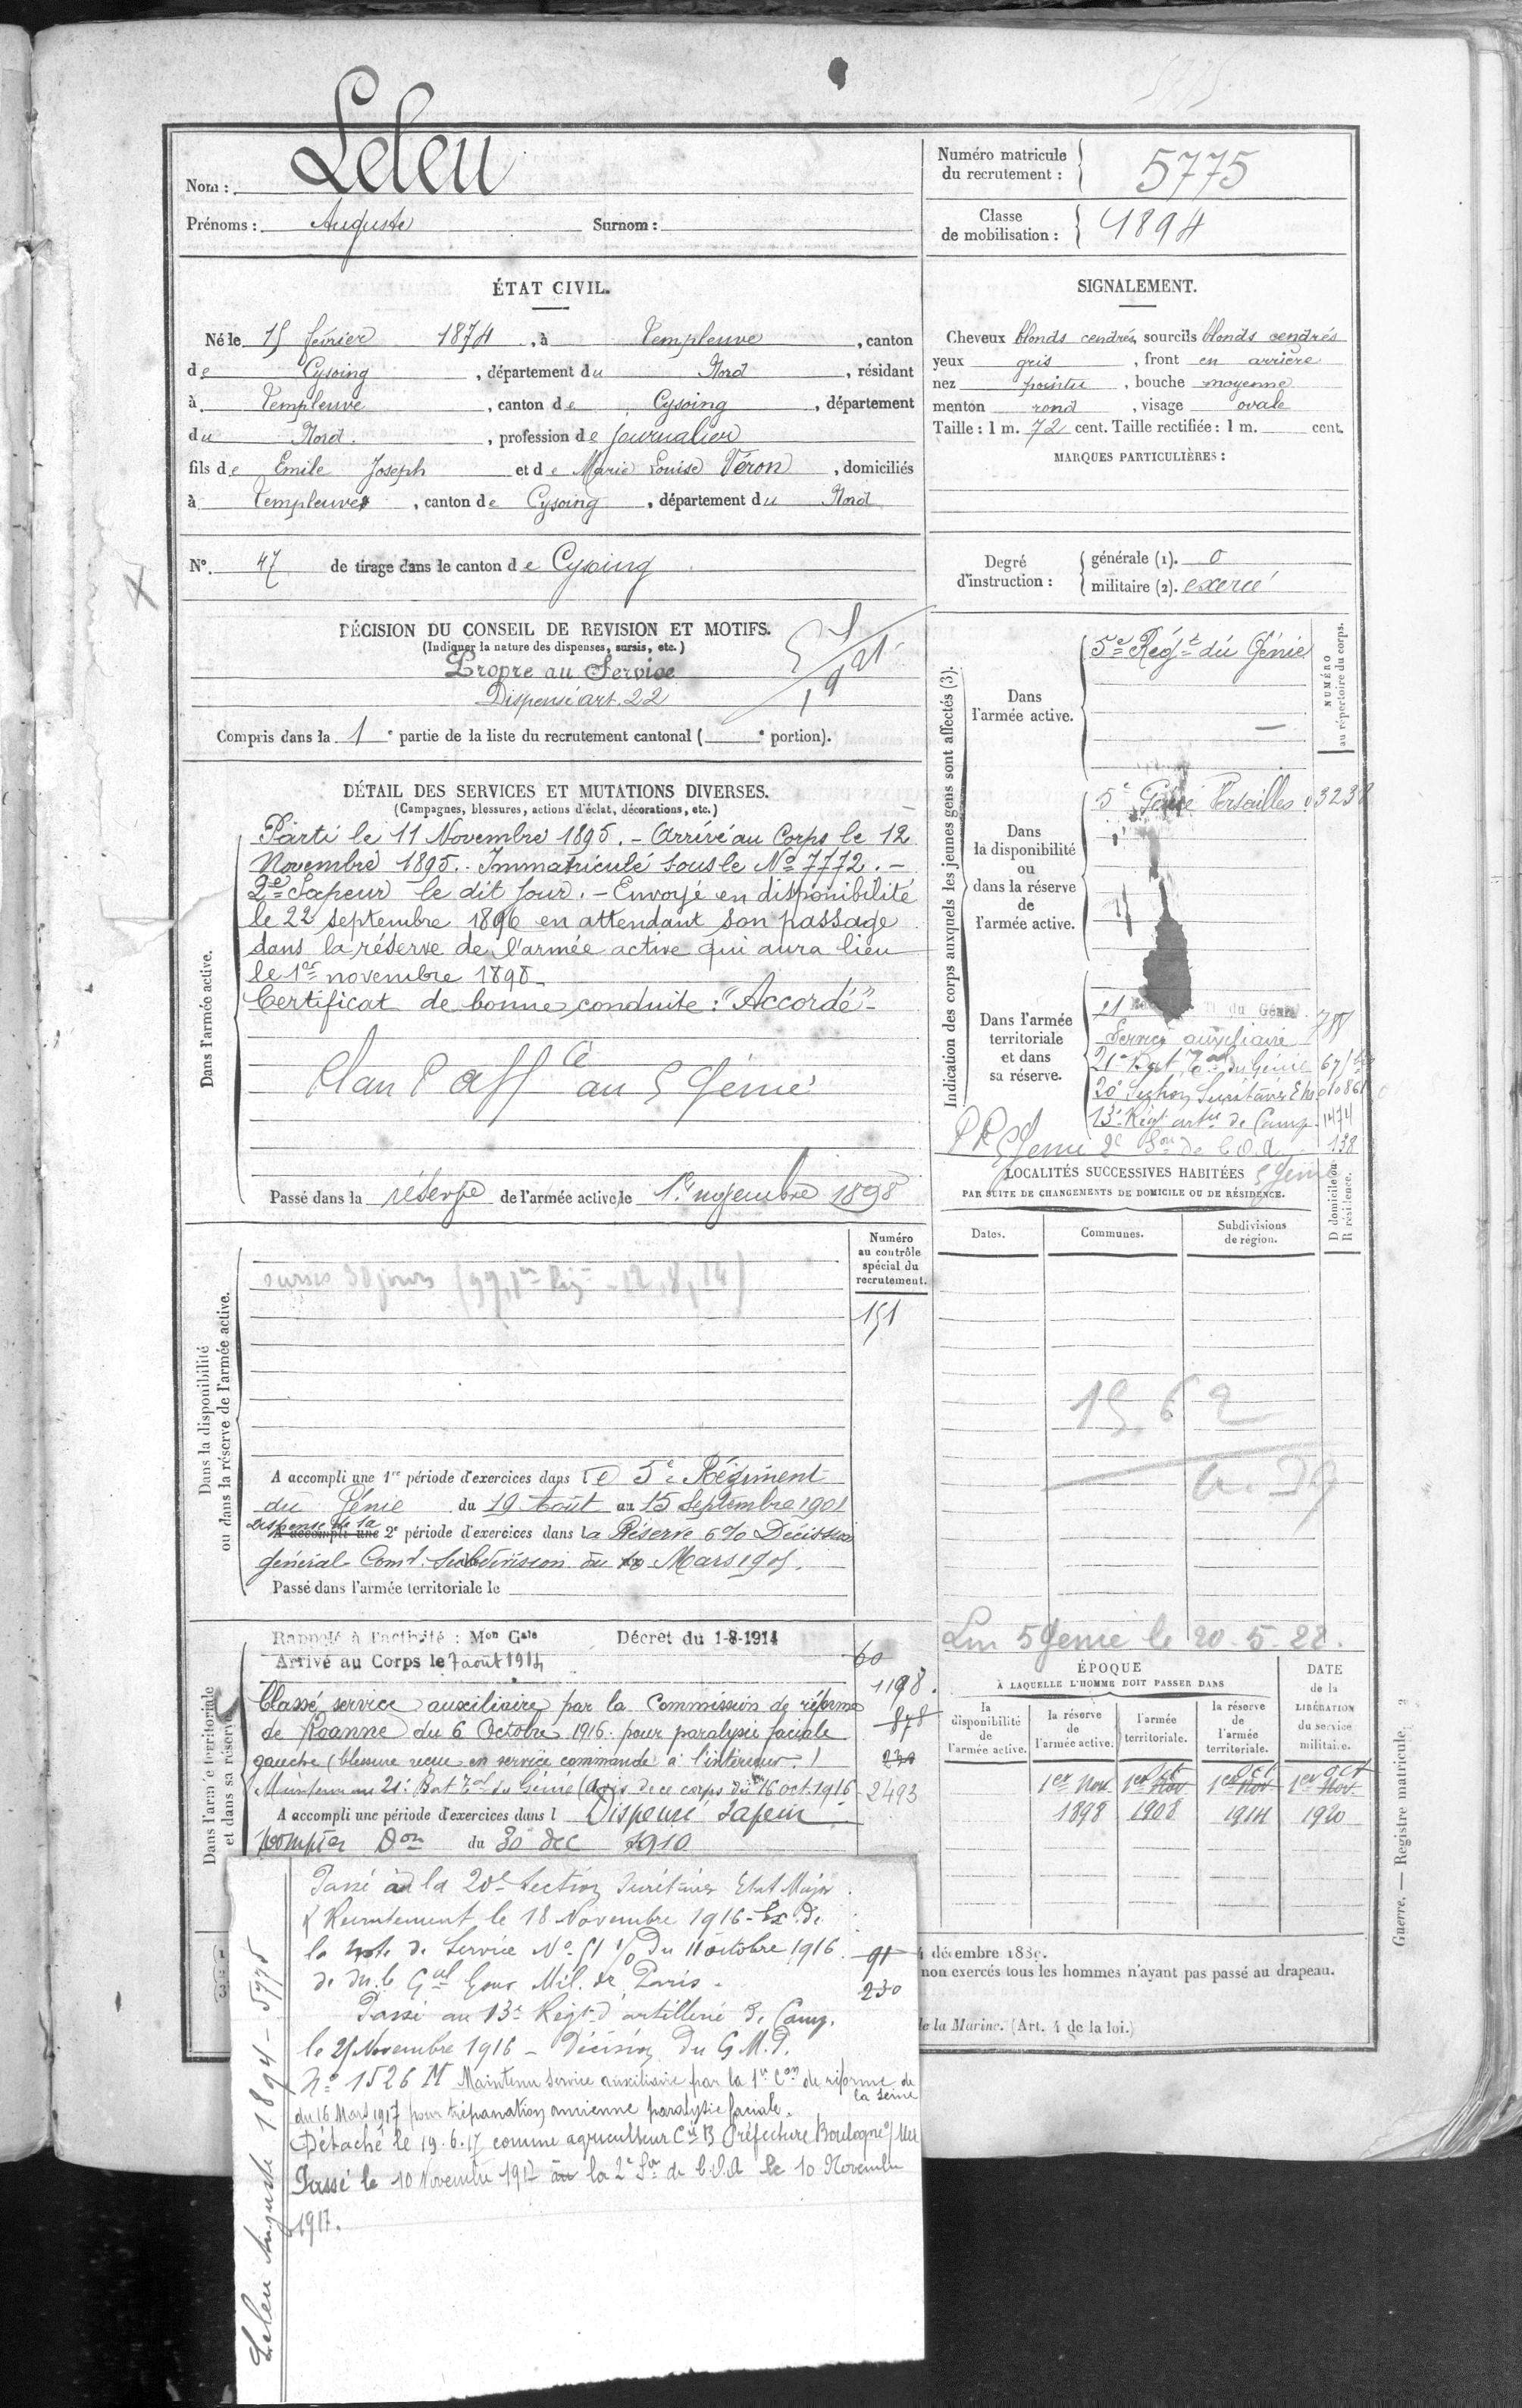 Nom : Leleu
Prénoms : Auguste Surnom :
Numéro matricule du recrutement : 5775
Classe de mobilisation : 1894
ÉTAT CIVIL.
Né le 15 février 1874, à Templeuve, canton
de Cysoing, département du Nord, résidant
à Templeuve, canton de Cysoing, département
du Nord, profession de journalier
fils de Emile Joseph et de Marie Louise Véron, domiciliés
à Templeuve, canton de Cysoing, département du Nord
N° 47 de tirage dans le canton de Cysoing
SIGNALEMENT.
Cheveux blonds cendrés, sourcils blonds cendrés
yeux gris, front en arrière
nez pointu, bouche moyenne
menton rond, visage ovale
Taille : 1 m. 72 cent. Taille rectifiée : 1 m. cent.
MARQUES PARTICULIÈRES :
Degré d'instruction : générale (1). 0
militaire (2). exercé
DÉCISION DU CONSEIL DE REVISION ET MOTIFS.
(Indiquer la nature des dispenses, sursis, etc.)
Propre au Service
Dispensé art. 22
Compris dans la 1e partie de la liste du recrutement cantonal ( e portion).
DÉTAIL DES SERVICES ET MUTATIONS DIVERSES.
(Campagnes, blessures, actions d'éclat, décorations, etc.)
Dans l'armée active.
Parti le 11 Novembre 1895. - Arrivé au Corps le 12
Novembre 1895. Immatriculé sous le No 7772. -
2e Sapeur le dit jour. - Envoyé en disponibilité
le 22 septembre 1896 en attendant son passage
dans la réserve de l'armée active qui aura lieu
le 1er novembre 1898.
Certificat de bonne conduite : "Accordé"-
Plan P affé au 5 Génie
Passé dans la réserve de l'armée active le 1er novembre 1898
Indication des corps auxquels les jeunes gens sont affectés (3).
NUMÉRO au répertoire du corps.
Dans l'armée active.
5e Régt du Génie
Dans la disponibilité ou dans la réserve de l'armée active.
5e Génie Versailles 03238
Dans l'armée territoriale et dans sa réserve.
21 du Génie
Service auxiliaire
21e Bat Tal du Génie 67
20e Section Secrétaires E M 010861
13e Régt artie de Camp. 1474
5 Génie 2e Son de C.O.A 138
LOCALITÉS SUCCESSIVES HABITÉES 5 Génie
PAR SUITE DE CHANGEMENTS DE DOMICILE OU DE RÉSIDENCE.
Dates. Communes. Subdivisions de région. D domicile ou R résidence.
1562
Dans la disponibilité ou dans la réserve de l'armée active.
Numéro au contrôle spécial du recrutement.
sursis 30 jours
151
A accompli une 1re période d'exercices dans le 5e Régiment
du Génie du 19 Août au 15 Septembre 1901
Dispensé de la
A accompli une 2e période d'exercices dans la Réserve 6% Décision
général Comt Subdivision du Mars 1905.
Passé dans l'armée territoriale le
Dans l'armée territoriale et dans sa réserve
Rappelé à l'activité : Mon Gale Décret du 1-8-1914
Arrivé au Corps le 7 août 1914
60
1198.
878
230
2493
Classé service auxiliaire par la Commission de réforme
de Roanne du 6 Octobre 1916 pour paralysie faciale
gauche (blessure reçue en service commandé à l'intérieur.)
Maintenu au 21e Bat Tal du Génie (Avis de ce corps du 16 oct. 1916
A accompli une période d'exercices dans l Dispensé Sapeur
pompier Don du 30 dec 1910
Lm 5 Genie le 20-5-22.
ÉPOQUE
À LAQUELLE L'HOMME DOIT PASSER DANS
DATE de la LIBÉRATION du service militaire.
la disponibilité de l'armée active. la réserve de l'armée active. l'armée territoriale. la réserve de l'armée territoriale.
1er Nov. 1898
1er Nov Oct 1908
1er Nov Oct 1914
1er Nov. Oct 1920
Passé à la 20e Section Secrétaires Etat Major
& Recrutement le 18 Novembre 1916 - Ex. de
la Note de Service No 51 1/0 du 11 octobre 1916
de Mr le Gal Gouv Mil. de Paris.
91
230
Passé au 13e Régt d'artillerie de Camp.
le 25 Novembre 1916 - Décision du G.M.P.
No 1526 M Maintenu Service auxiliaire par la 1re Con de réforme de la Seine
du 16 Mars 1917 pour trépanation ancienne paralysie faciale.
Détaché le 19.6.17 comme agriculteur Cie B Préfecture Boulogne s/Mer
Passé le 10 Novembre 1917 à la 2e Son de C.O.A le 10 Novembre
1917.
Leleu Auguste 1894 - 5775
4 décembre 188
non exercés tous les hommes n'ayant pas passé au drapeau.
de la Marine. (Art. 4 de la loi.)
Guerre. — Registre matricule. 2